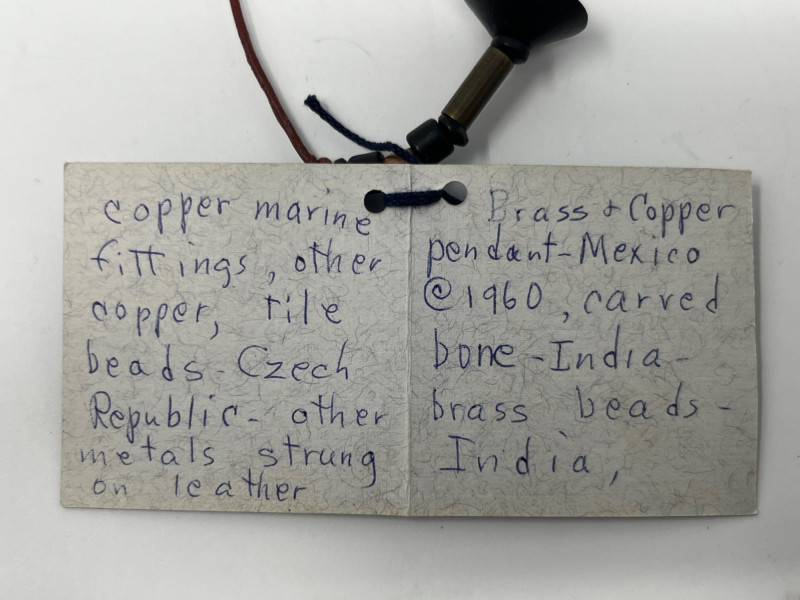 copper marine
fittings, other
copper, tile
beads - Czech
Republic - other
metals strung
on leather
Brass + Copper
pendant - Mexico
@1960, carved
bone - India -
brass beads -
India,